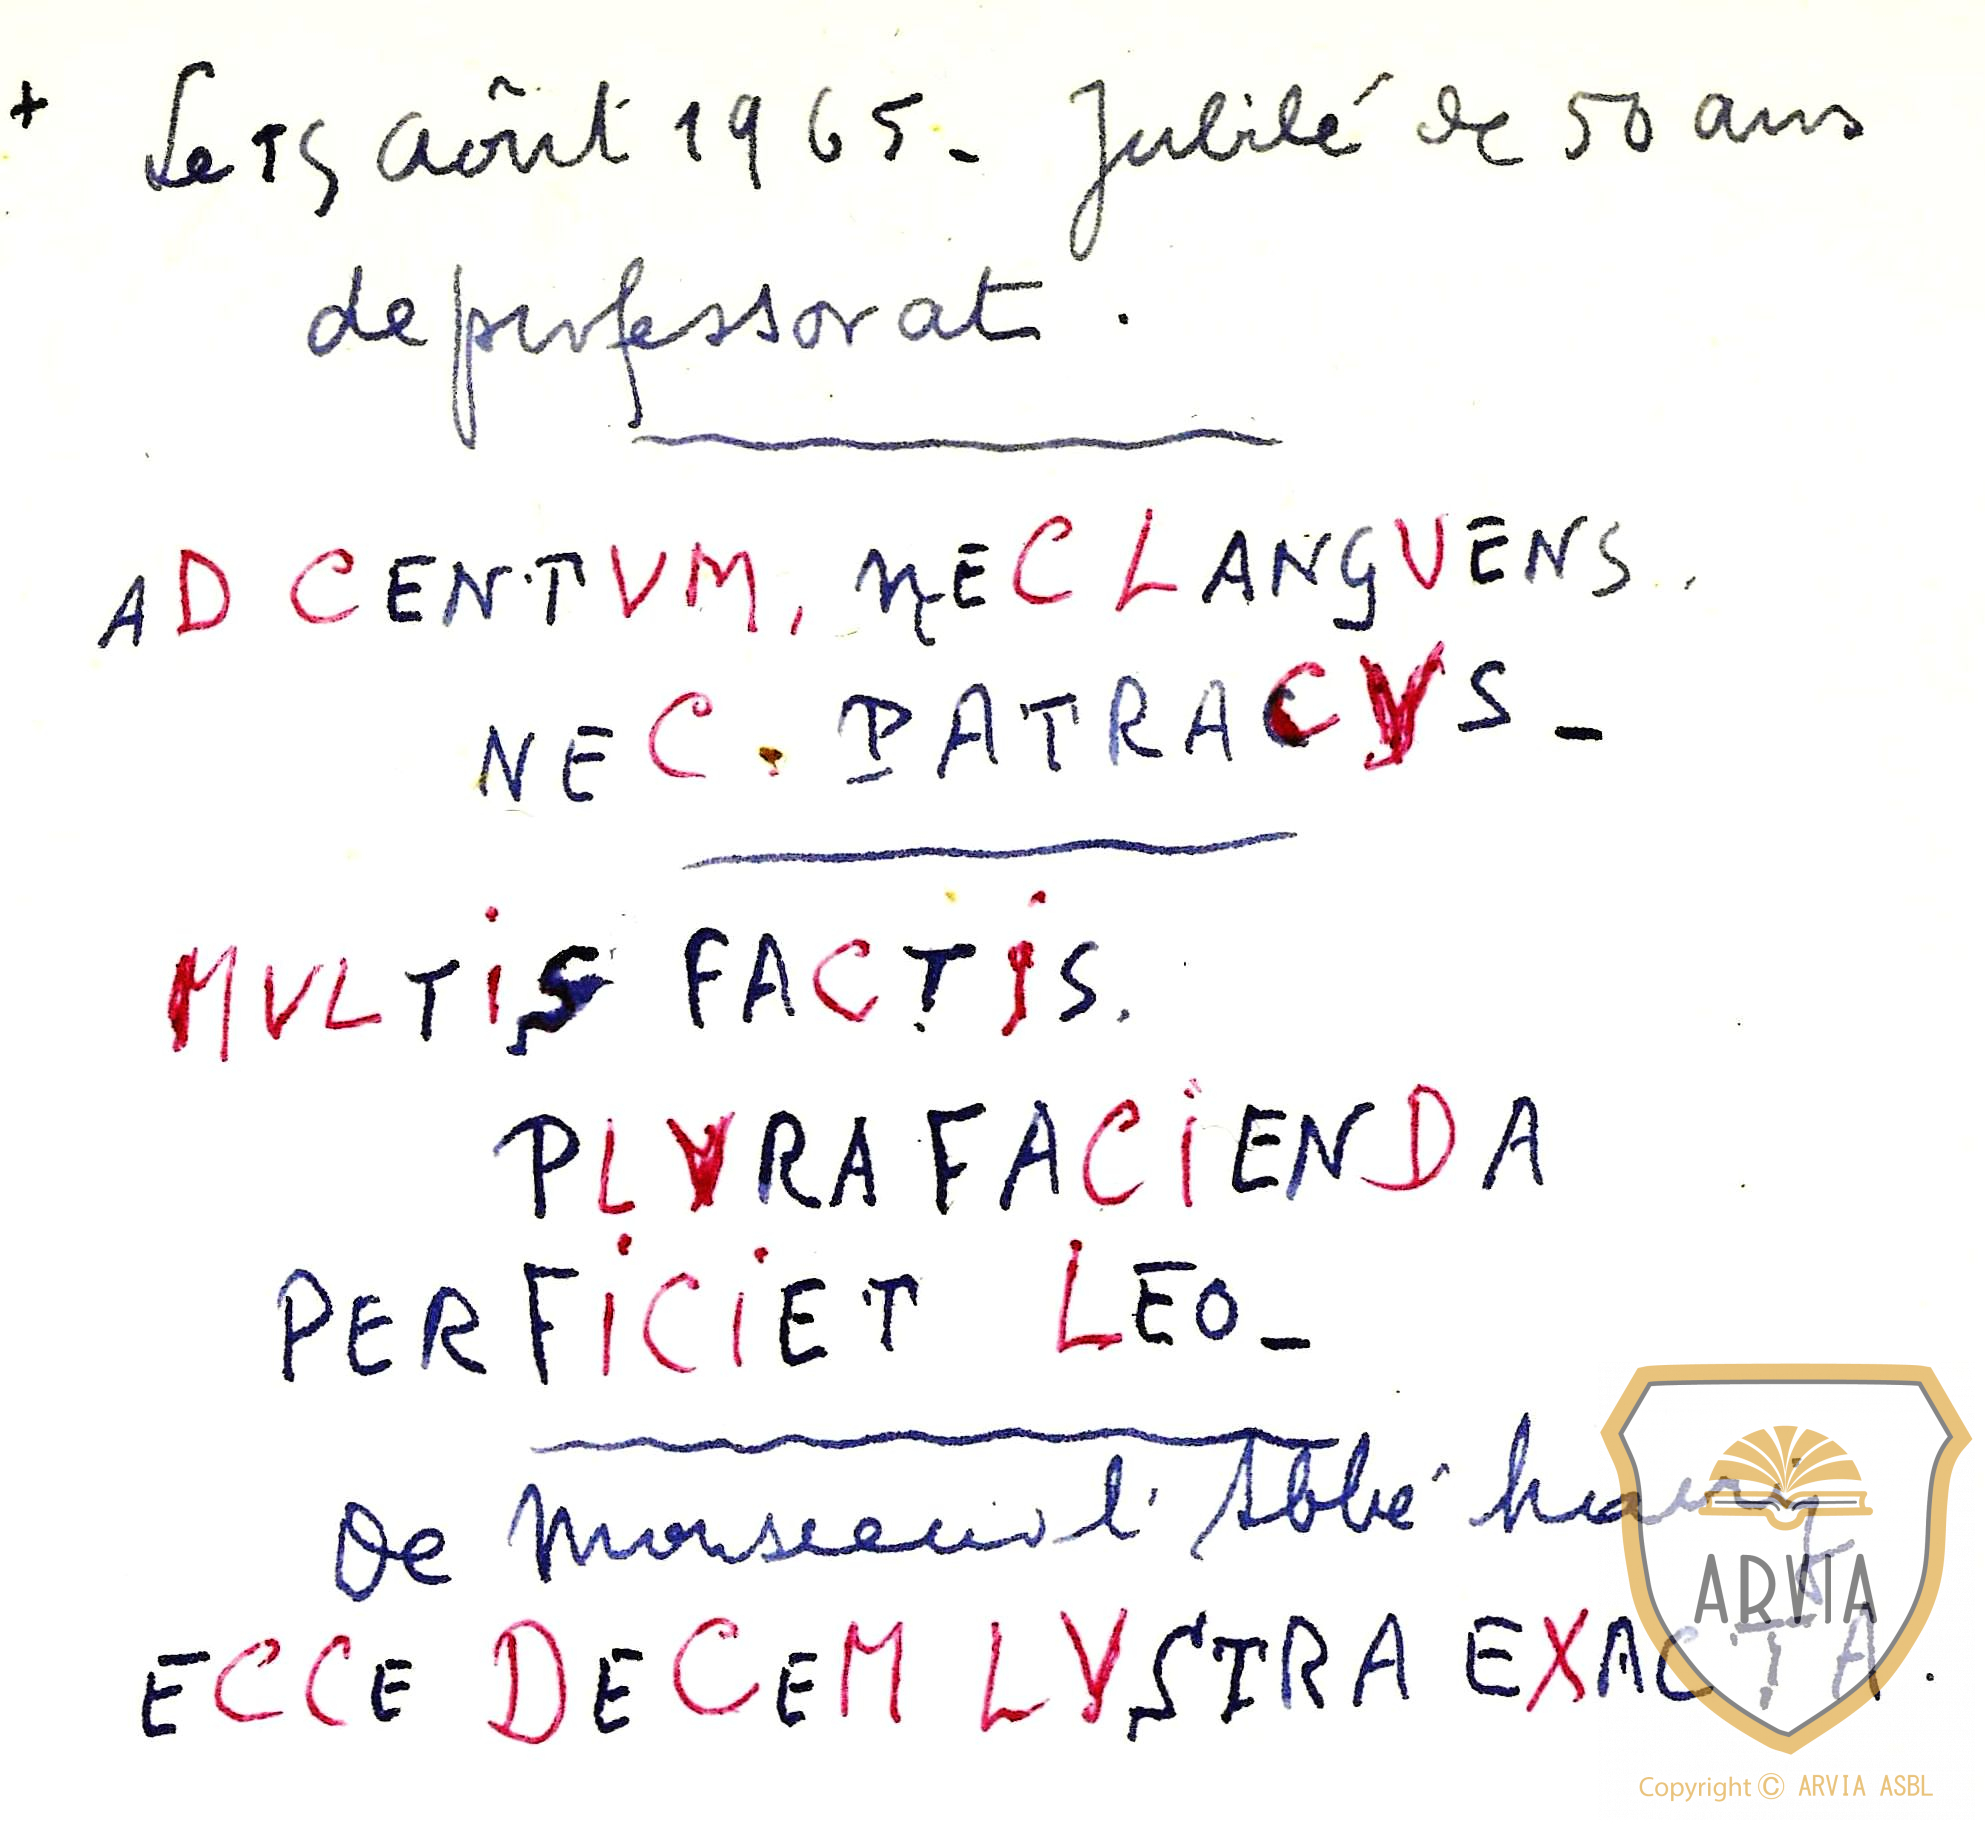 + Le 15 Août 1965 - Jubilé de 50 ans
de professorat.
AD CENTVM, NEC LANGVENS.
NEC. PATRACVS -
MVLTiS FACTiS.
PLVRA FACiENDA
PERFiCiET LEO -
De Monsieur l'Abbé
ECCE DECEM LVSTRA EXACTA.
ARVIA
Copyright © ARVIA ASBL